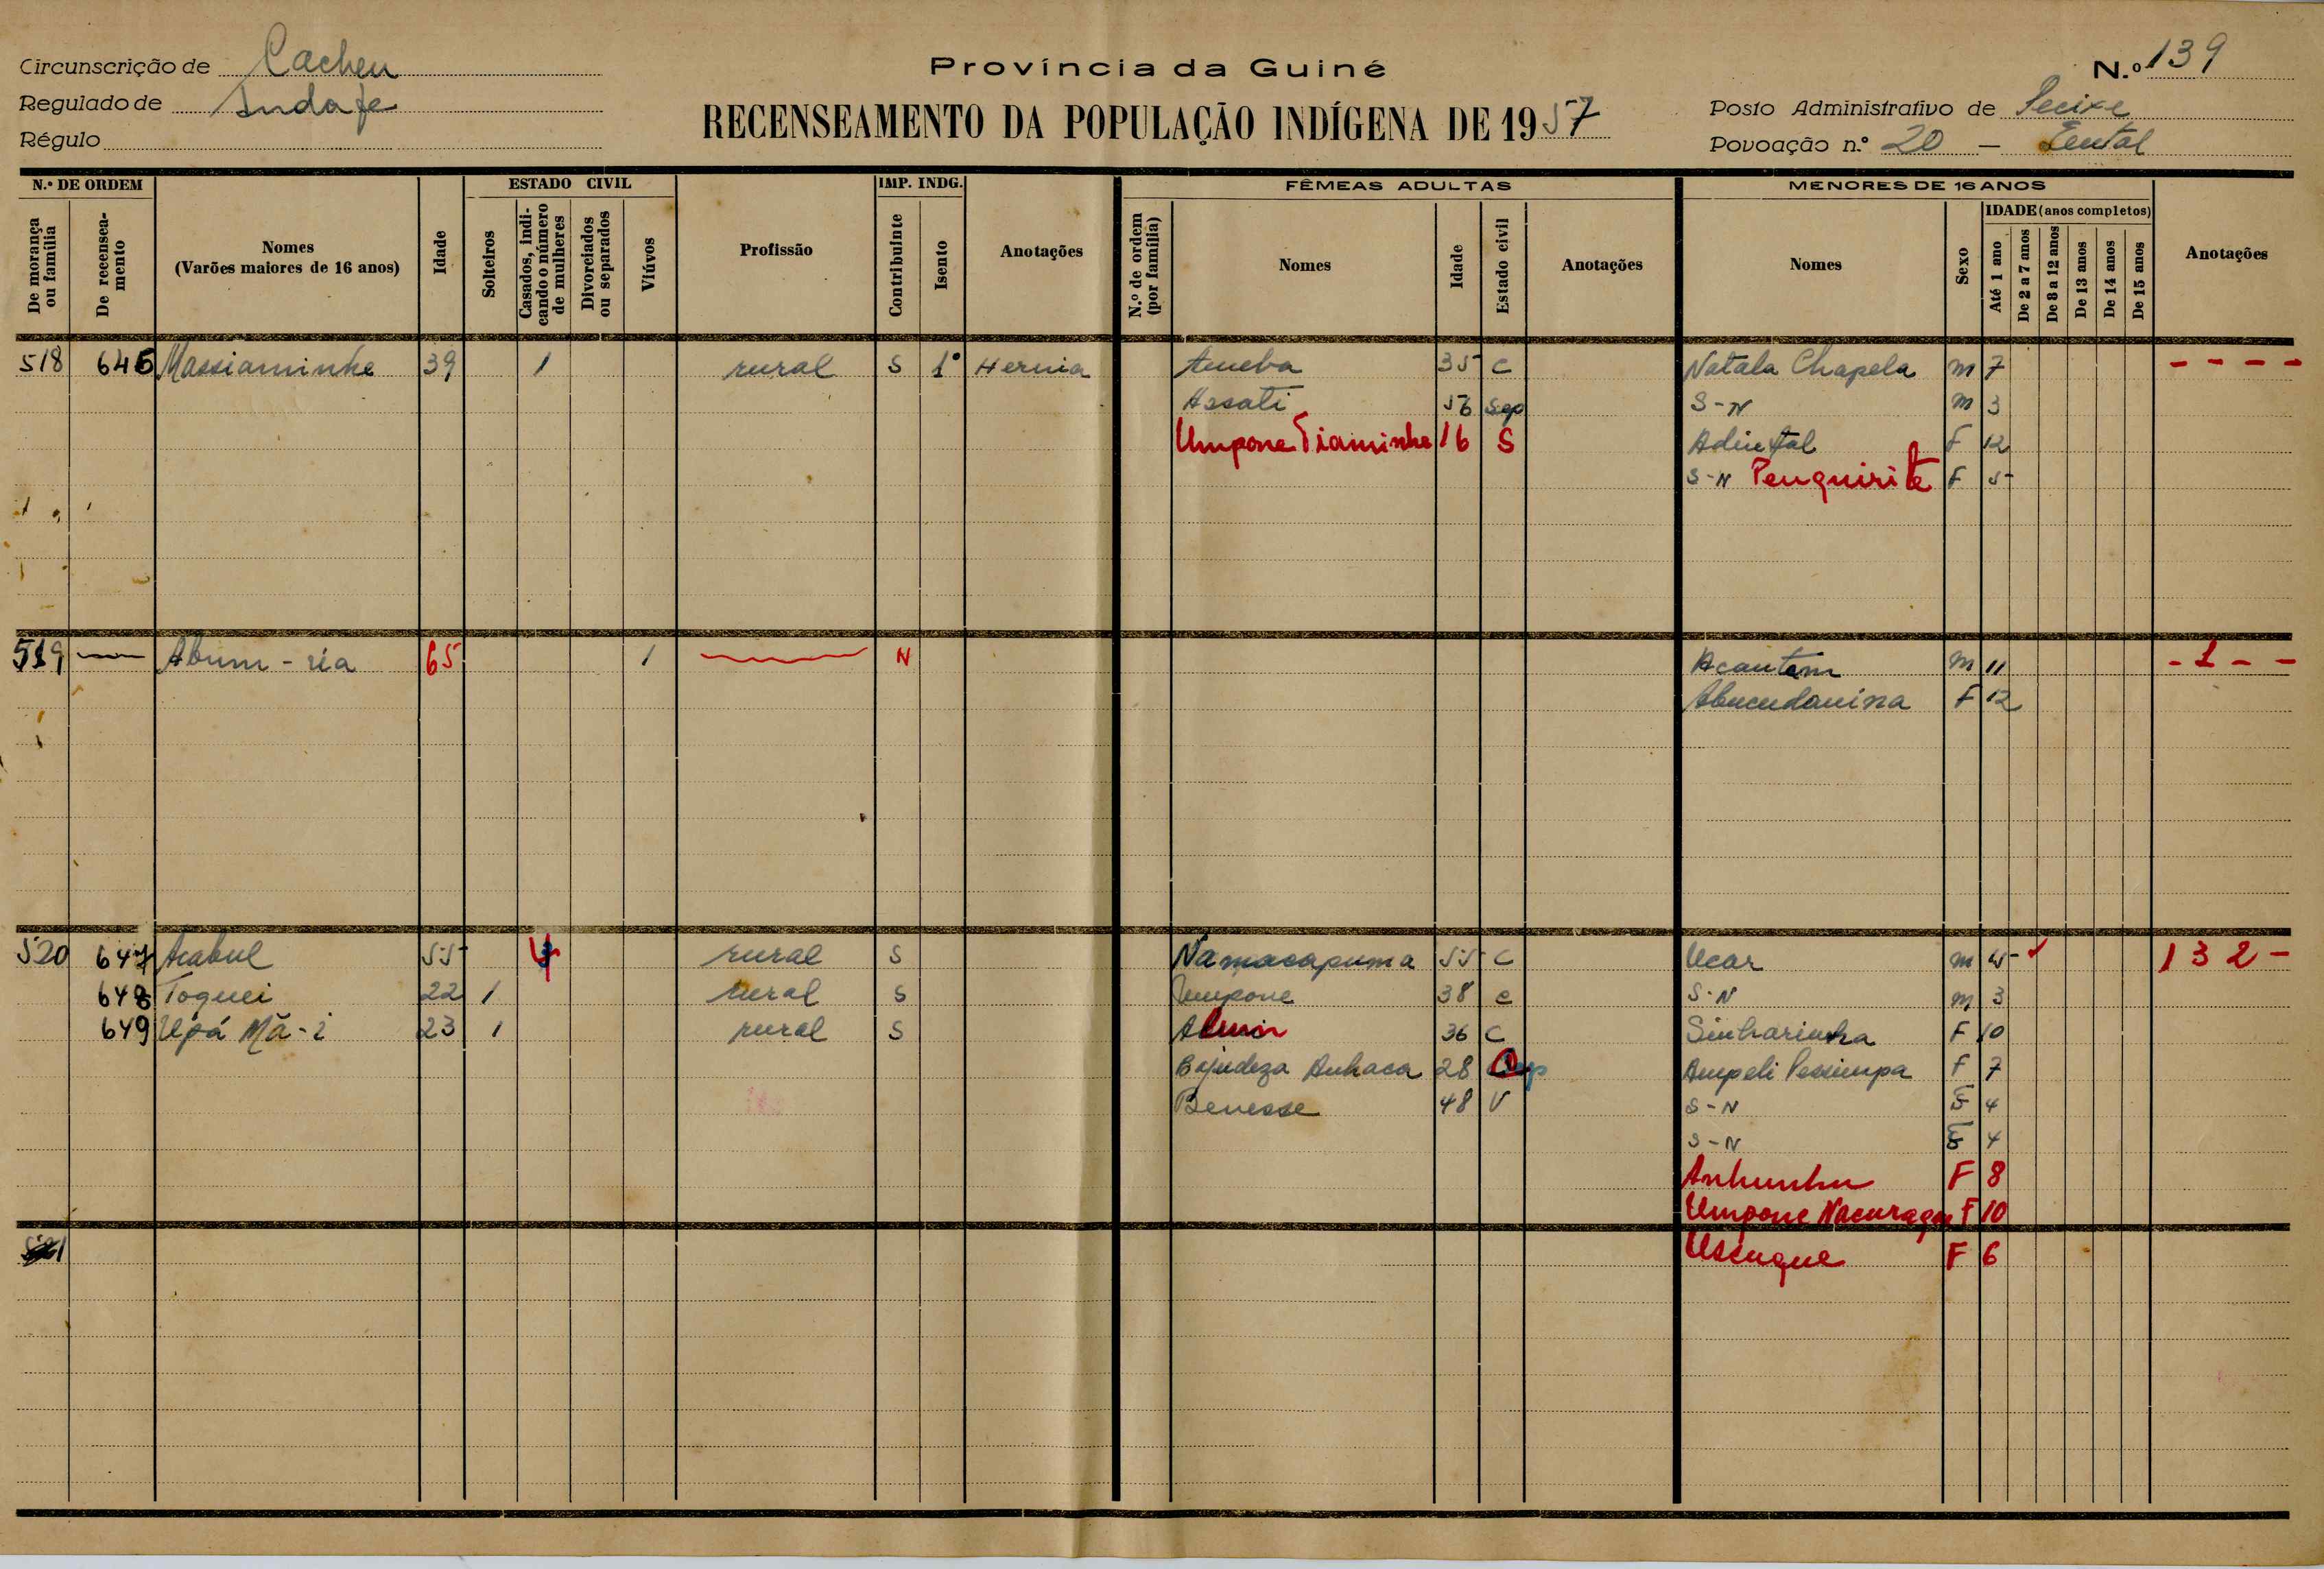 Circunscrição de Cacheu
Regulado de
Régulo
Província da Guiné
RECENSEAMENTO DA POPULAÇÃO INDÍGENA DE 1957
N.º 139
Posto Administrativo de Pecixe
Povoação n.º 20 —
N.º DE ORDEM
De morança ou família
De recenseamento
Nomes
(Varões maiores de 16 anos)
Idade
ESTADO CIVIL
Solteiros
Casados, indicando o número de mulheres
Divorciados ou separados
Viúvos
Profissão
IMP. INDG.
Contribuinte
Isento
Anotações
FÊMEAS ADULTAS
N.º de ordem (por família)
Nomes
Idade
Estado civil
Anotações
MENORES DE 16 ANOS
Nomes
Sexo
IDADE (anos completos)
Até 1 ano
De 2 a 7 anos
De 8 a 12 anos
De 13 anos
De 14 anos
De 15 anos
Anotações
518 646 Massiaminhe 39 1 rural S 1º Hernia Ameba 35 C Natala Chapela m 7 - - - -
Assati 56 Sep S-N m 3
Umpone Tiaminhe 16 S F 12
S-N Penquirite F 5
519 — Abum-ria 65 1 N Acantam m 11 - 1 - -
F 12
520 647 Acabul 55 4 rural S Namacapuma 55 C Ucar m 1 3 2 -
648 Toquei 22 1 rural S Umpone 38 C S-N m 3
649 Upá Mã-i 23 1 rural S 36 C Sinharinha F 10
Bajudeza Anhaca 28 F 7
Benesse 48 V S-N F 4
S-N F 4
Anhunhu F 8
Umpone F 10
F 6